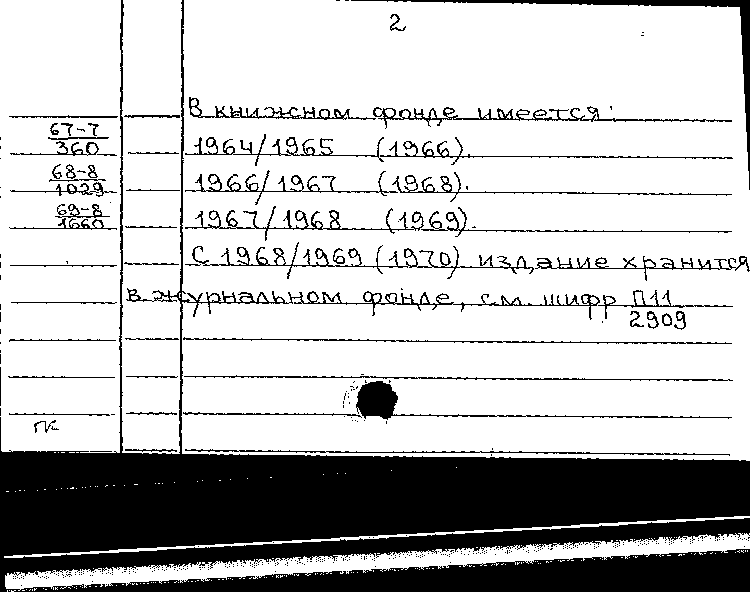 2
В книжном фонде имеется:
67-7
360 1964/1965 (1966).
68-8
1029 1966/1967 (1968).
69-8
1660 1967/1968 (1969).
С 1968/1969 (1970) издание хранится
в журнальном фонде, см. шифр П11
2909
ГК